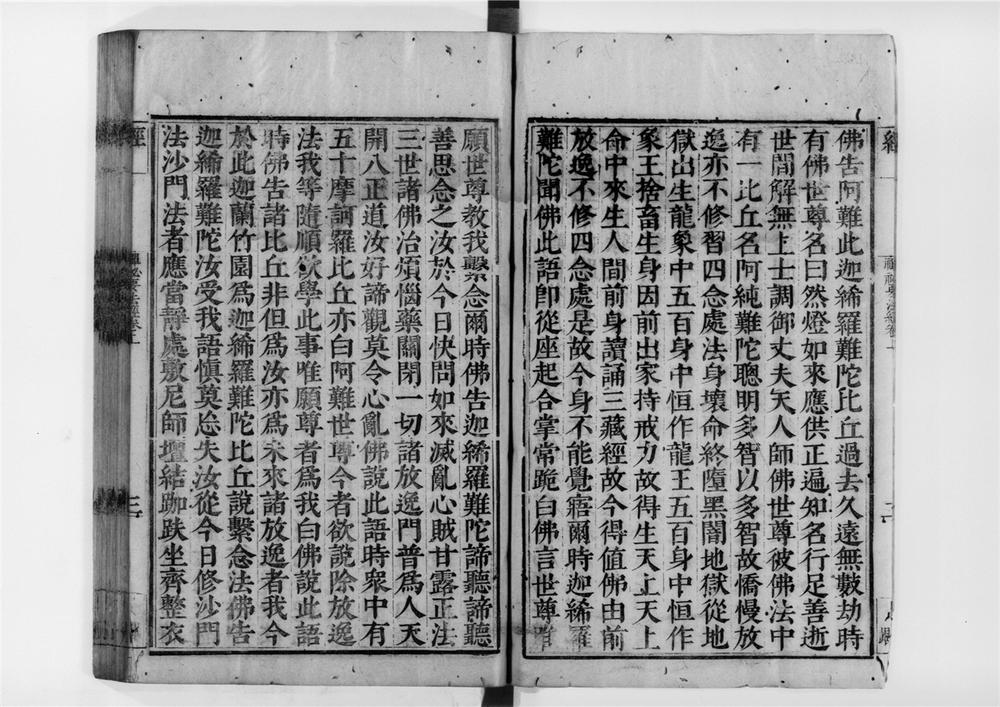 佛告阿難此迦絺羅難陀比丘過去久遠無數劫時
有佛世尊名曰然燈如來應供正遍知名行足善逝
世間解無上士調御丈夫天人師佛世尊彼佛法中
有一比丘名阿純難陀聰明多智以多智故憍慢放
逸亦不修習四念處法身壞命終墮黑闇地獄從地
獄出生龍象中五百身中恒作龍王五百身中恒作
象王捨畜生身因前出家持戒力故得生天上天上
命中來生人間前身讀誦三藏經故今得值佛由前
放逸不修四念處是故今身不能覺寤爾時迦絺羅
難陀聞佛此語卽從座起合掌常跪白佛言世尊唯
願世尊教我繫念爾時佛告迦絺羅難陀諦聽諦聽
善思念之汝於今日快問如來滅亂心賊甘露正法
三世諸佛治煩惱藥關閉一切諸放逸門普爲人天
開八正道汝好諦觀莫令心亂佛說此語時衆中有
五十摩訶羅比丘亦白阿難世尊今者欲說除放逸
法我等隨順欲學此事唯願尊者爲我白佛說此語
時佛告諸比丘非但爲汝亦爲未來諸放逸者我今
於此迦蘭竹園爲迦絺羅難陀比丘說繫念法佛告
迦絺羅難陀汝受我語愼莫忘失汝從今日修沙門
法沙門法者應當靜處敷尼師壇結跏趺坐齊整衣
經
三